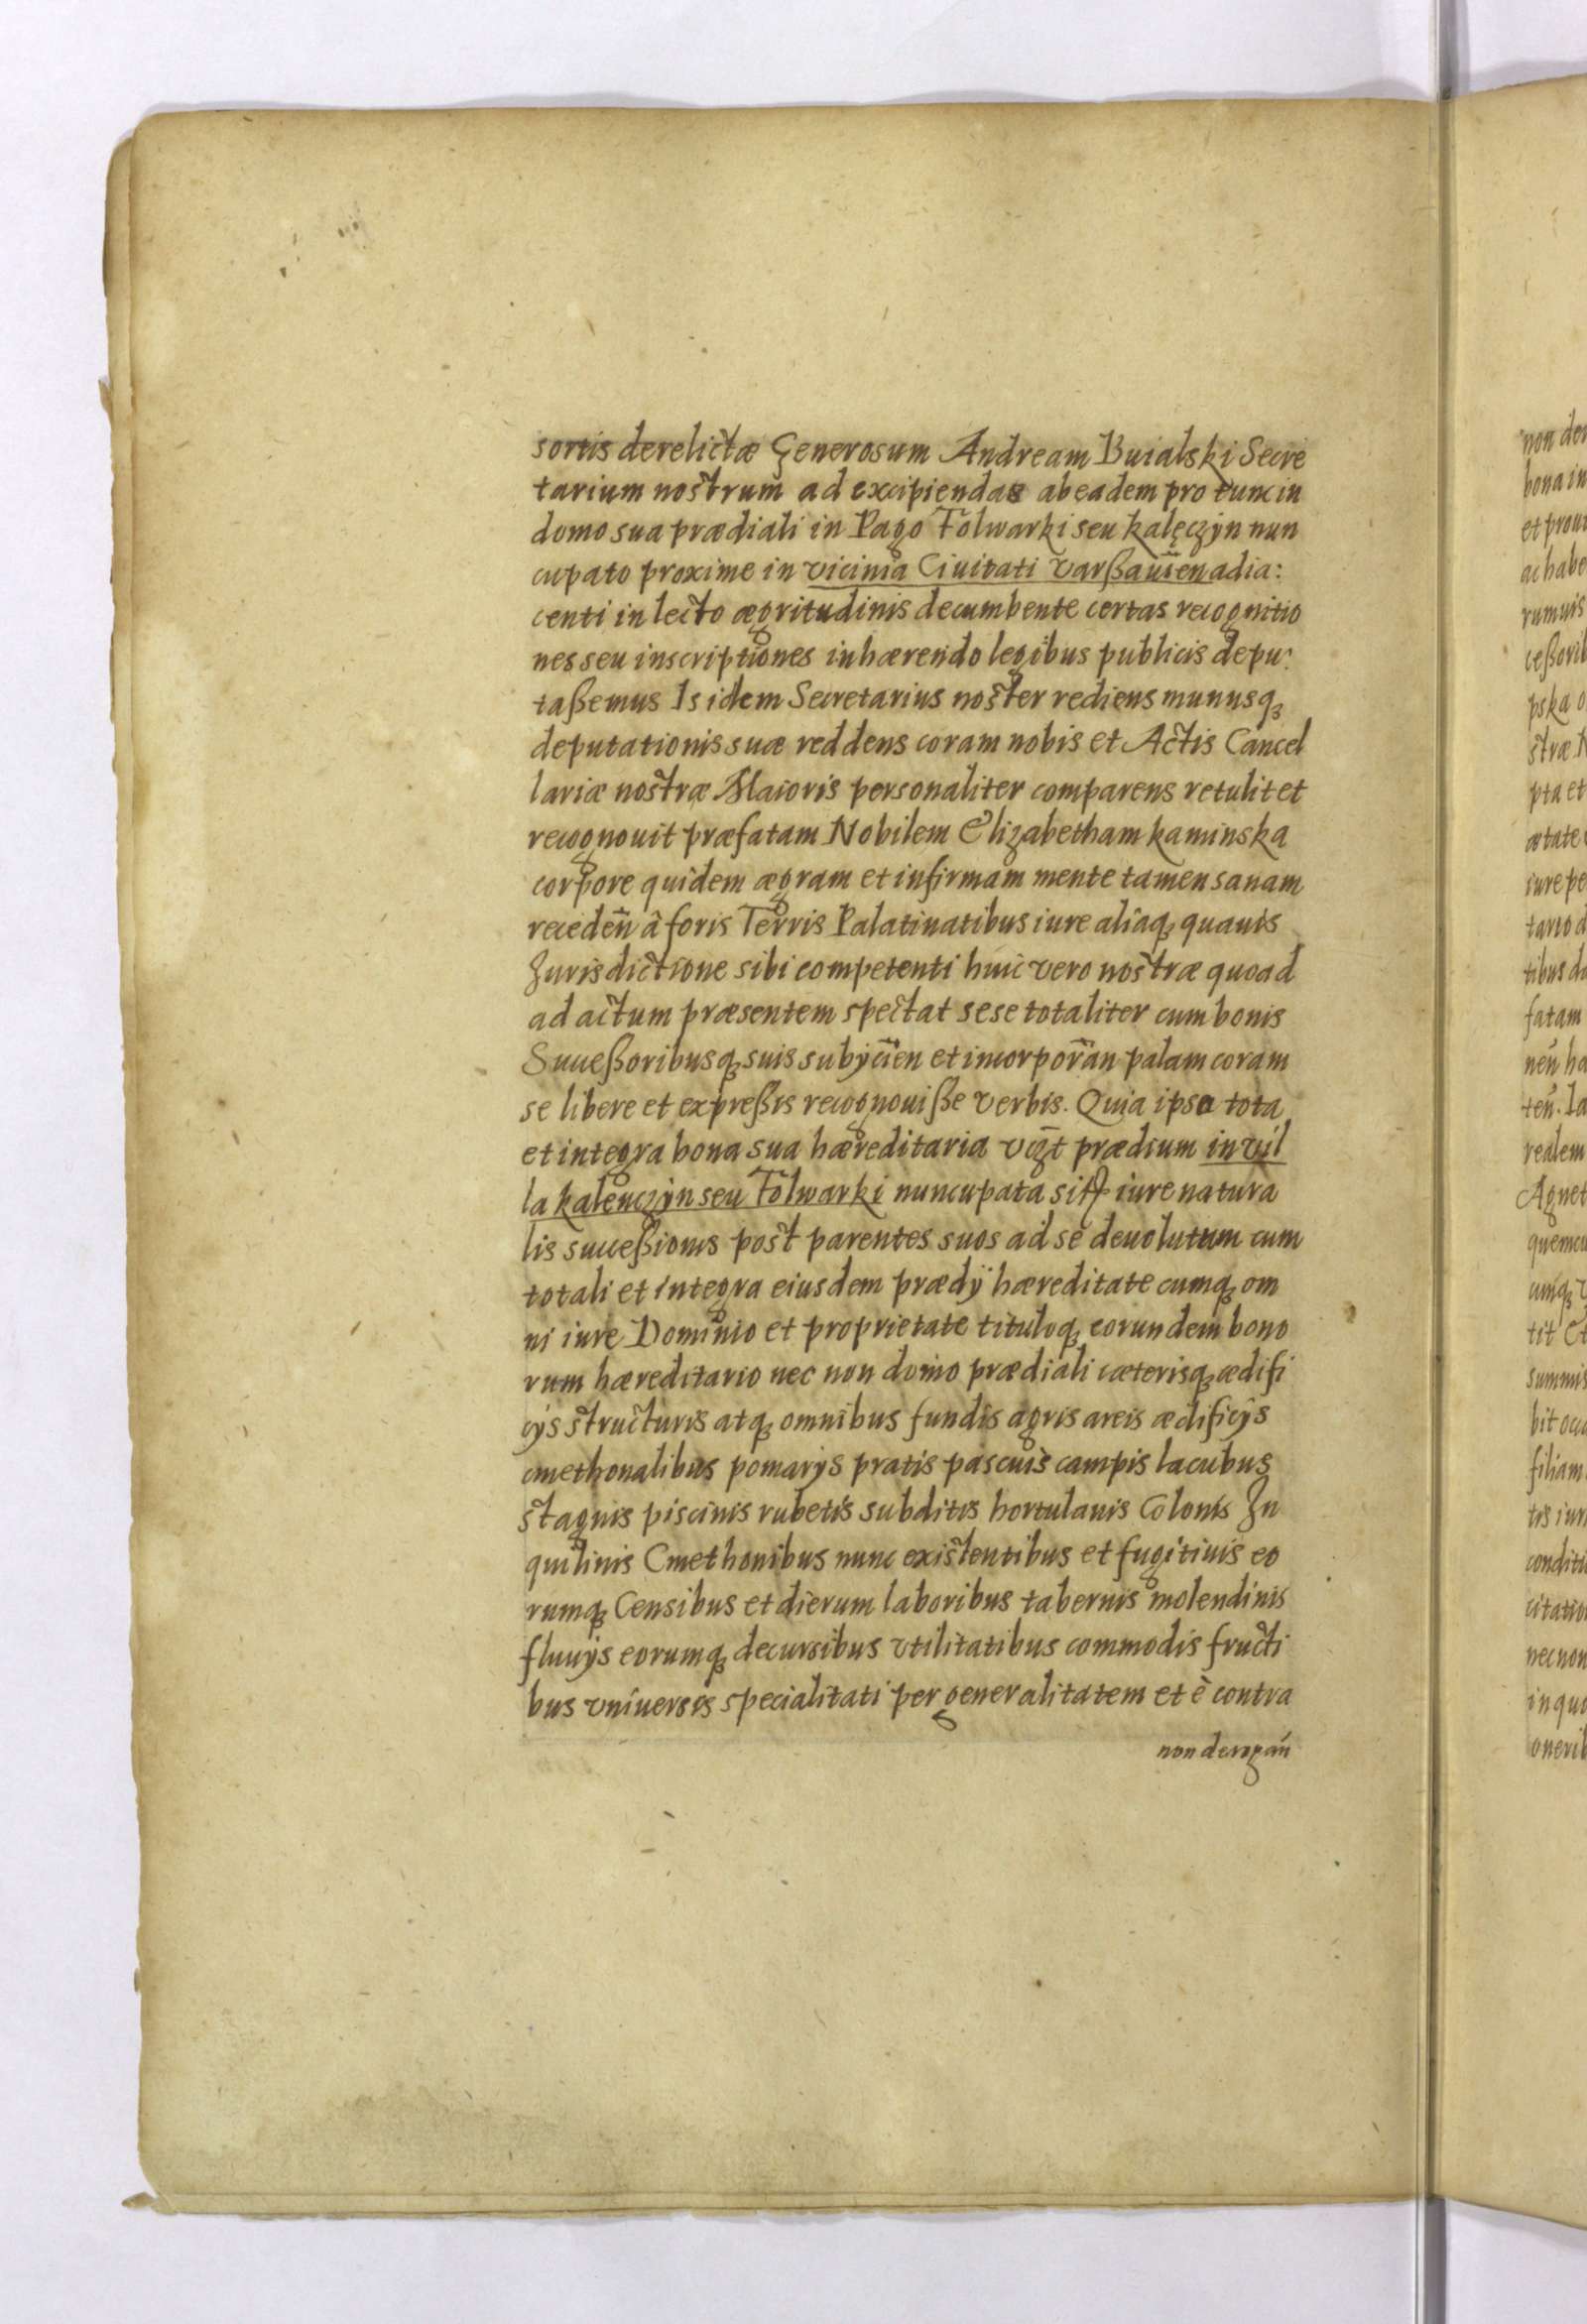 sortis derelictæ Generosum Andream Buialski Secre
tarium nostrum ad excipiendas ab eadem pro tunc in
domo sua prædiali in Pago Folwarki seu kalęczyn nun
cupato proxime in vicinia Ciuitati Varßauien adia:
centi in lecto ægritudinis decumbente certas recognitio
nes seu inscriptiones inhærendo legibus publicis depu:
taßemus Is idem Secretarius noster rediens munusq
deputationis suæ reddens coram nobis et Actis Cancel
lariæ nostræ Maioris personaliter comparens retulit et
recognouit præfatam Nobilem Elizabetham kaminska
corpore quidem ægram et infirmam mente tamen sanam
receden̄ â foris Terris Palatinatibus iure aliâq quauis
Jurisdictione sibi competenti huic vero nostræ quoad
ad actum præsentem spectat sese totaliter cum bonis
Succeßoribusq suis subÿcien et incorporan palam coram
se libere et expreßis recognouiße verbis. Quia ipsa tota
et integra bona sua hæreditaria vigt prædium in vil
la kalenczyn seu Folwarki nuncupata iure natura
lis succeßionis post parentes suos ad se deuolutum cum
totali et integra eiusdem prædÿ hæreditate cumq om
ni iure Dominio et proprietate tituloq eorundem bono
rum hæreditario nec non domo prædiali cæterisq ædifi
cÿs structuris atq omnibus fundis agris areis ædificÿs
cmethonalibus pomarÿs pratis pascuis campis lacubus
stagnis piscinis rubetis subditis hortulanis Colonis In
quilinis Cmethonibus nunc existentibus et fugitiuis eo
rumq Censibus et dierum laboribus tabernis molendinis
fluuÿs eorumq decursibus vtilitatibus commodis fructi
bus vniuersis specialitati per generalitatem et è contra
non derogan̄